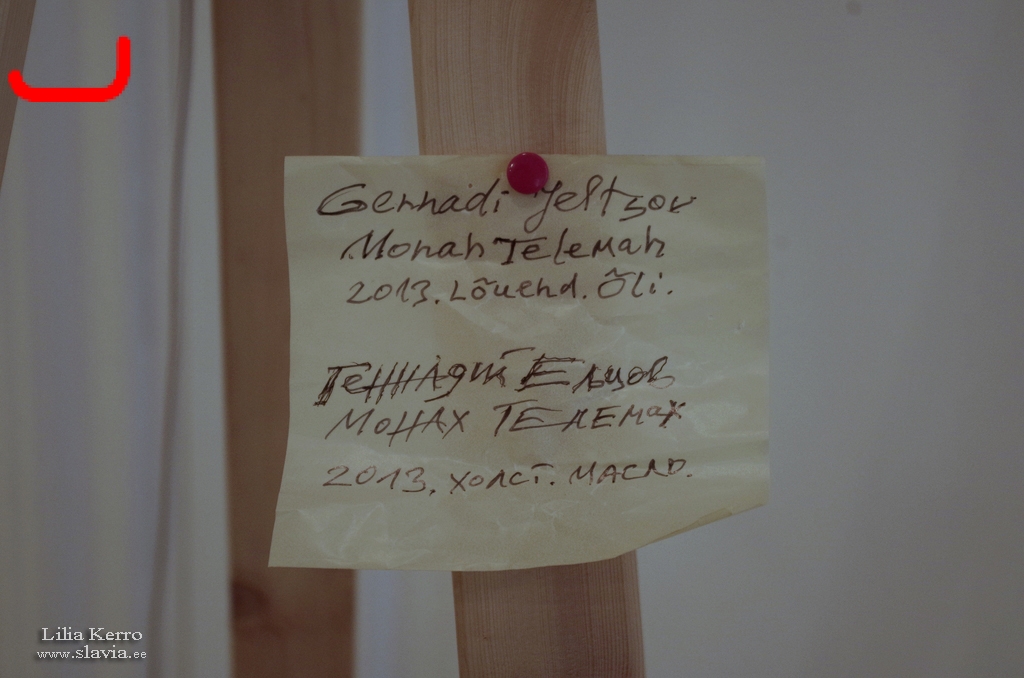 Gennadi Jeltzov
Monah Telemah
2013. Lõuend. Õli.
Геннадий Ельцов
Монах Телемах
2013. холст. масло.
Lilia Kerro
www.slavia.ee